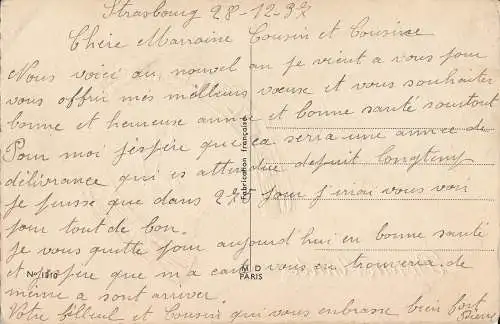 Strasbourg 28-12-37
Chère Marraine Cousin et Cousine
Nous voici au nouvel an je vient a vous pour
vous offrir mes meilleurs vœux et vous souhaiter
bonne et heureuse année et bonne santé surtout
Pour moi j'espére que ça sera une année de
délivrance qui es attendue depuit longtemp
je puisse que dans 275 jour j'irai vous voir
pour tout de bon.
Je vous quitte pour aujourd'hui en bonne santé
et espére que ma carte vous en trouvera de
même a sont arriver.
Votre filleul et Cousin qui vous enbrasse bien fort
Pierre
Fabrication française
No
M D
PARIS